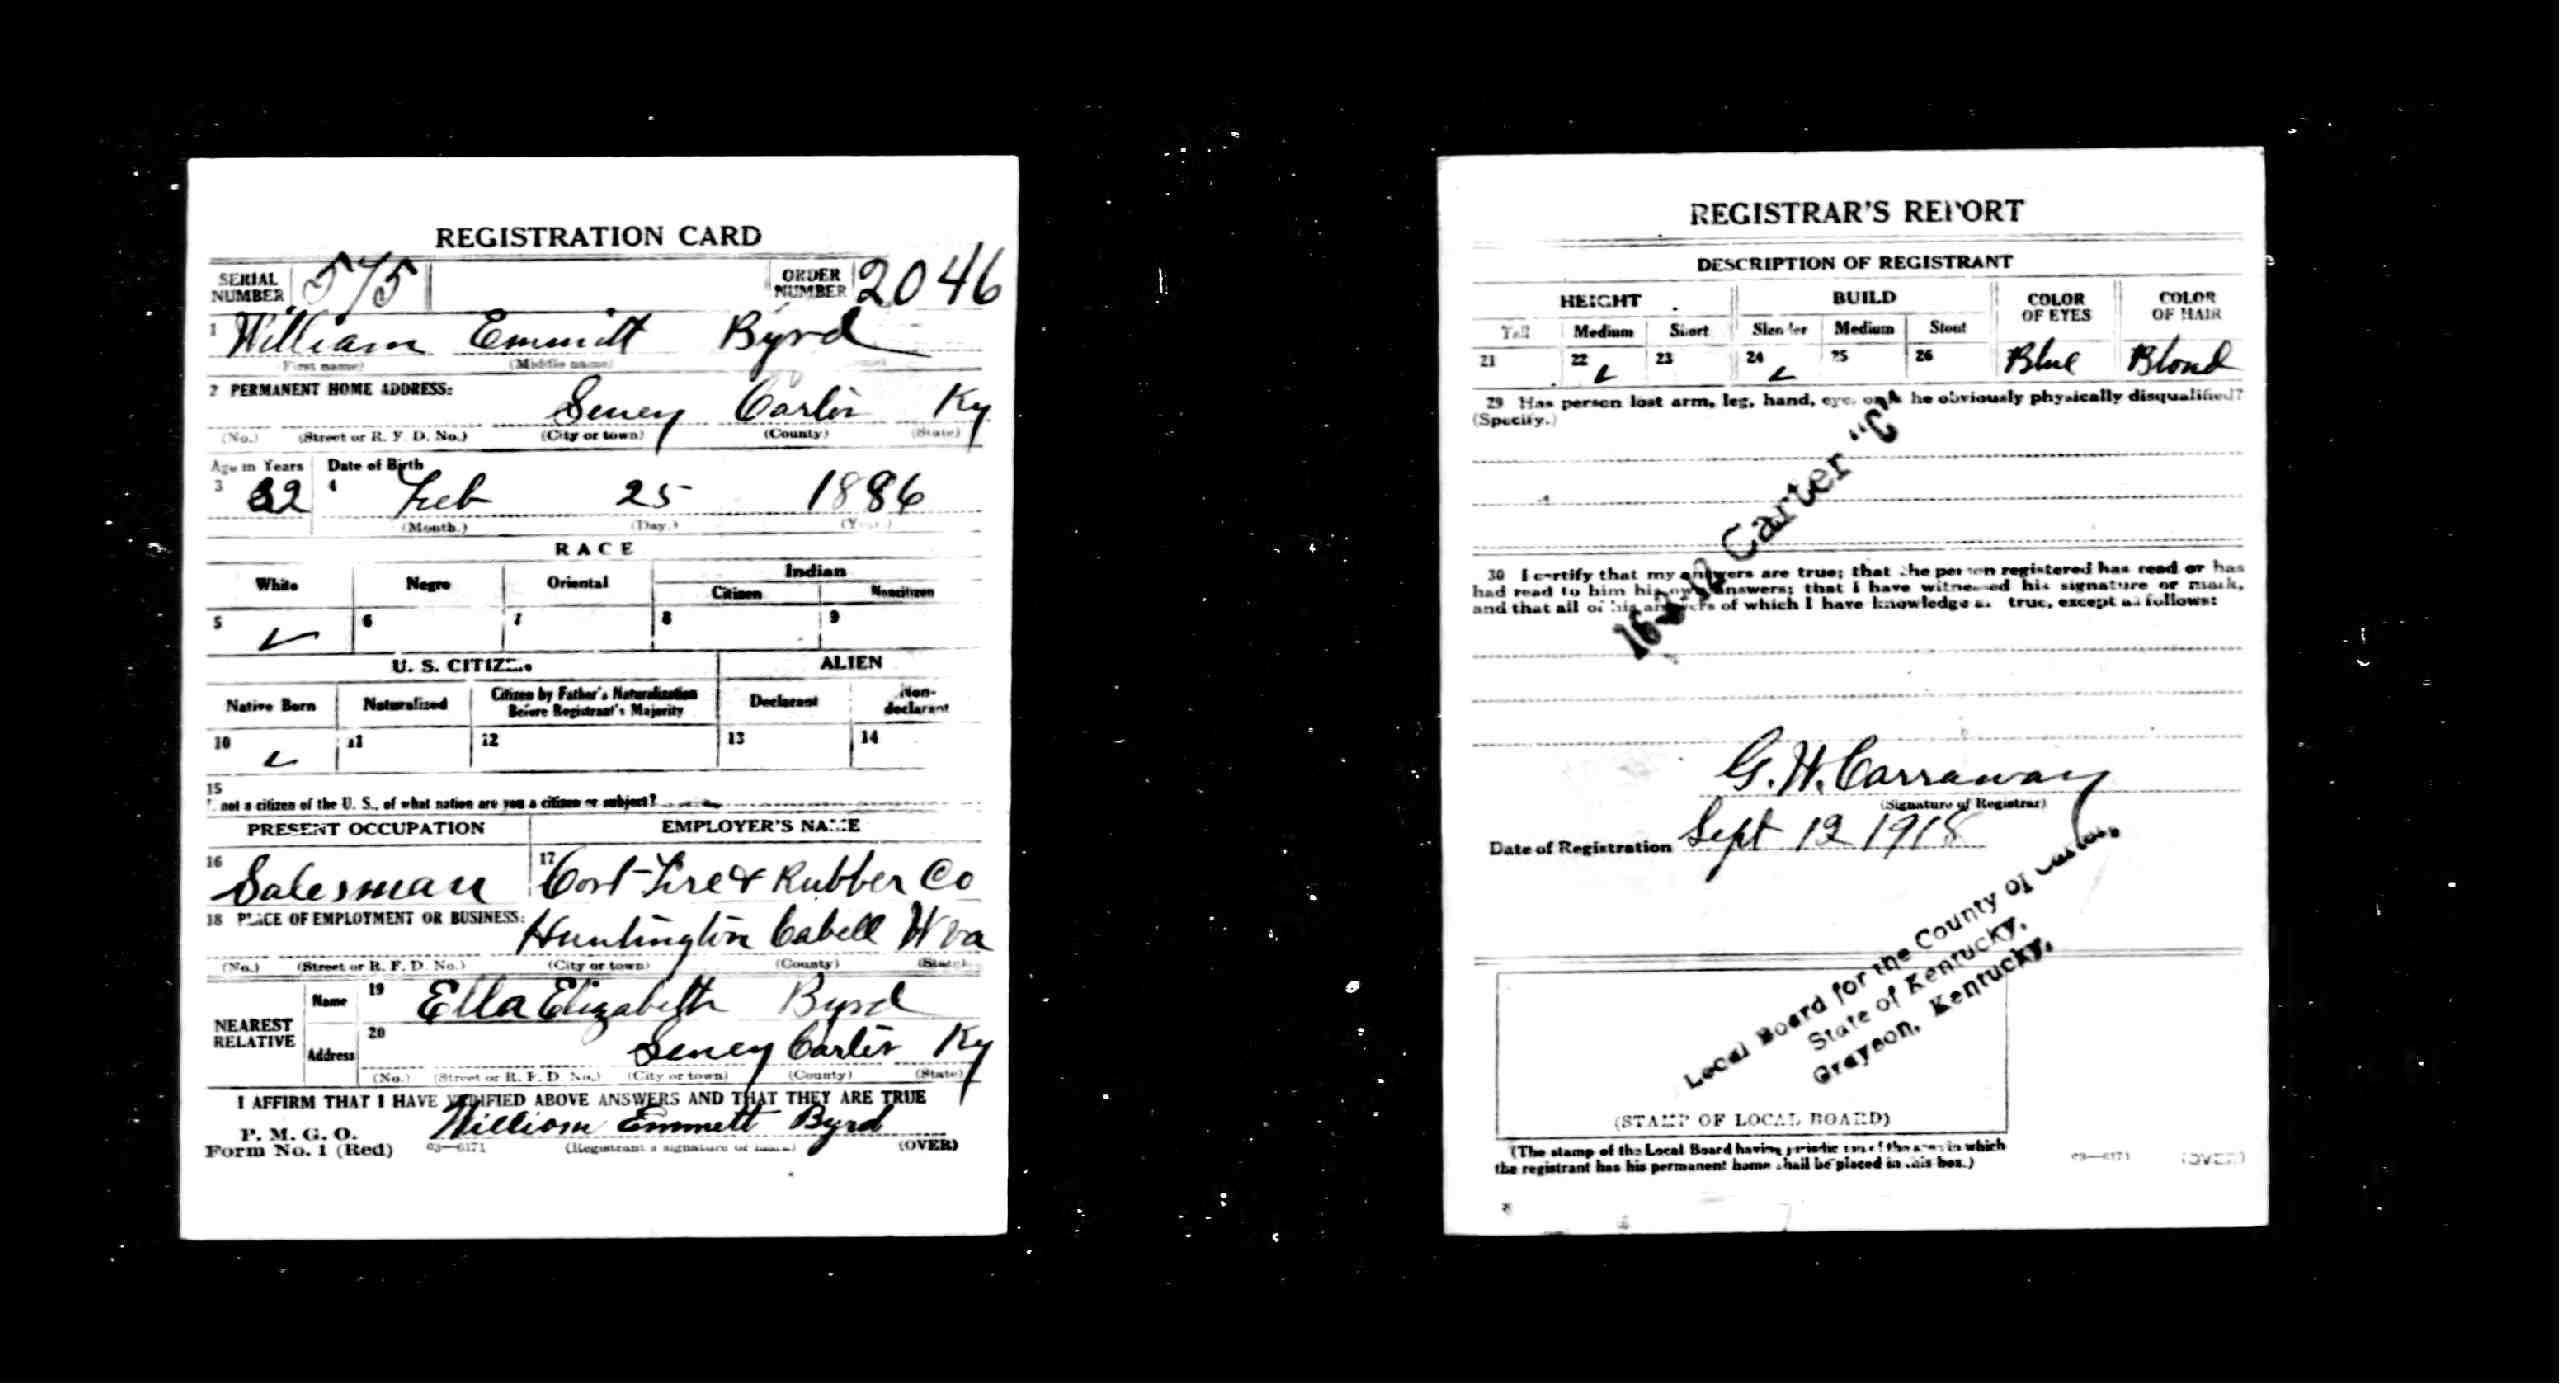 REGISTRATION CARD
SERIAL NUMBER 575 ORDER NUMBER 2046
1 William Emmitt Byrd
(First name) (Middle name)
2 PERMANENT HOME ADDRESS:
Carter Ky
(No.) (Street or R. F. D. No.) (City or town) (County) (State)
Age in Years Date of Birth
3 32 4 Feb 25 1886
(Month.) (Day.) (Year.)
RACE
White Negro Oriental Indian
Citizen Noncitizen
5 ✓ 6 7 8 9
U. S. CITIZEN ALIEN
Native Born Naturalized Citizen by Father's Naturalization Before Registrant's Majority Declarant Non-declarant
10 ✓ 11 12 13 14
15
If not a citizen of the U. S., of what nation are you a citizen or subject?
PRESENT OCCUPATION EMPLOYER'S NAME
16 Salesman 17 Tire & Rubber Co
18 PLACE OF EMPLOYMENT OR BUSINESS:
Huntington Cabell W va
(No.) (Street or R. F. D. No.) (City or town) (County) (State)
NEAREST RELATIVE
Name 19 Ella Elizabeth Byrd
Address 20 Carter Ky
(No.) (Street or R. F. D. No.) (City or town) (County) (State)
I AFFIRM THAT I HAVE VERIFIED ABOVE ANSWERS AND THAT THEY ARE TRUE
P. M. G. O.
Form No. 1 (Red) 03—6171 William Emmett Byrd
(Registrant's signature or mark) (OVER)
REGISTRAR'S REPORT
DESCRIPTION OF REGISTRANT
HEIGHT BUILD COLOR OF EYES COLOR OF HAIR
Tall Medium Short Slender Medium Stout
21 22 ✓ 23 24 ✓ 25 26 Blue Blond
29 Has person lost arm, leg, hand, eye, or is he obviously physically disqualified?
(Specify.)
Carter "C"
30 I certify that my answers are true; that the person registered has read or has
had read to him his own answers; that I have witnessed his signature or mark,
and that all of his answers of which I have knowledge are true, except as follows:
G. W. Carraway
(Signature of Registrar)
Date of Registration Sept 12 1918
Local Board for the County of Carter,
State of Kentucky,
Grayson, Kentucky.
(STAMP OF LOCAL BOARD)
(The stamp of the Local Board having jurisdiction of the area in which
the registrant has his permanent home shall be placed in this box.)
03—6171 (OVER)